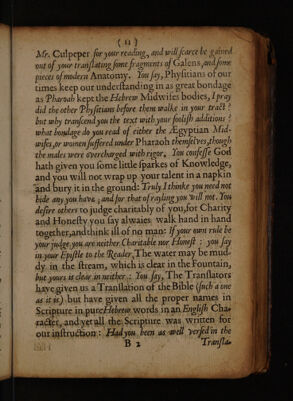 ( 11 )
Mr. Culpeper for your reading, and will scarce be gained
out of your translating some fragments of Galens, and some
pieces of modern Anatomy. You say, Physitians of our
times keep our understanding in as great bondage
as Pharoah kept the Hebrew Midwives bodies, I pray
did the other Physitians before them walke in your tract?
but why transcend you the text with your foolish additions?
what bondage do you read of either the Ægyptian Mid-
wifes, or women suffered under Pharaoh themselves, though
the males were overcharged with rigor. You confesse God
hath given you some little sparkes of Knowledge,
and you will not wrap up your talent in a napkin
and bury it in the ground: Truly I thinke you need not
hide any you have, and for that of rayling you will not. You
desire others to judge charitably of you, for Charity
and Honesty you say alwaies walk hand in hand
together, and think ill of no man: If your own rule be
your judge, you are neither Charitable nor Honest: you say
in your Epistle to the Reader, The water may be mud-
dy in the stream, which is clear in the Fountain,
but yours is clear in neither: You say, The Translators
have given us a Translation of the Bible (such a one
as it is) but have given all the proper names in
Scripture in pure Hebrew words in an English Cha-
racter, and yet all the Scripture was written for
our instruction: Had you been as well versed in the
B 2 Transla-